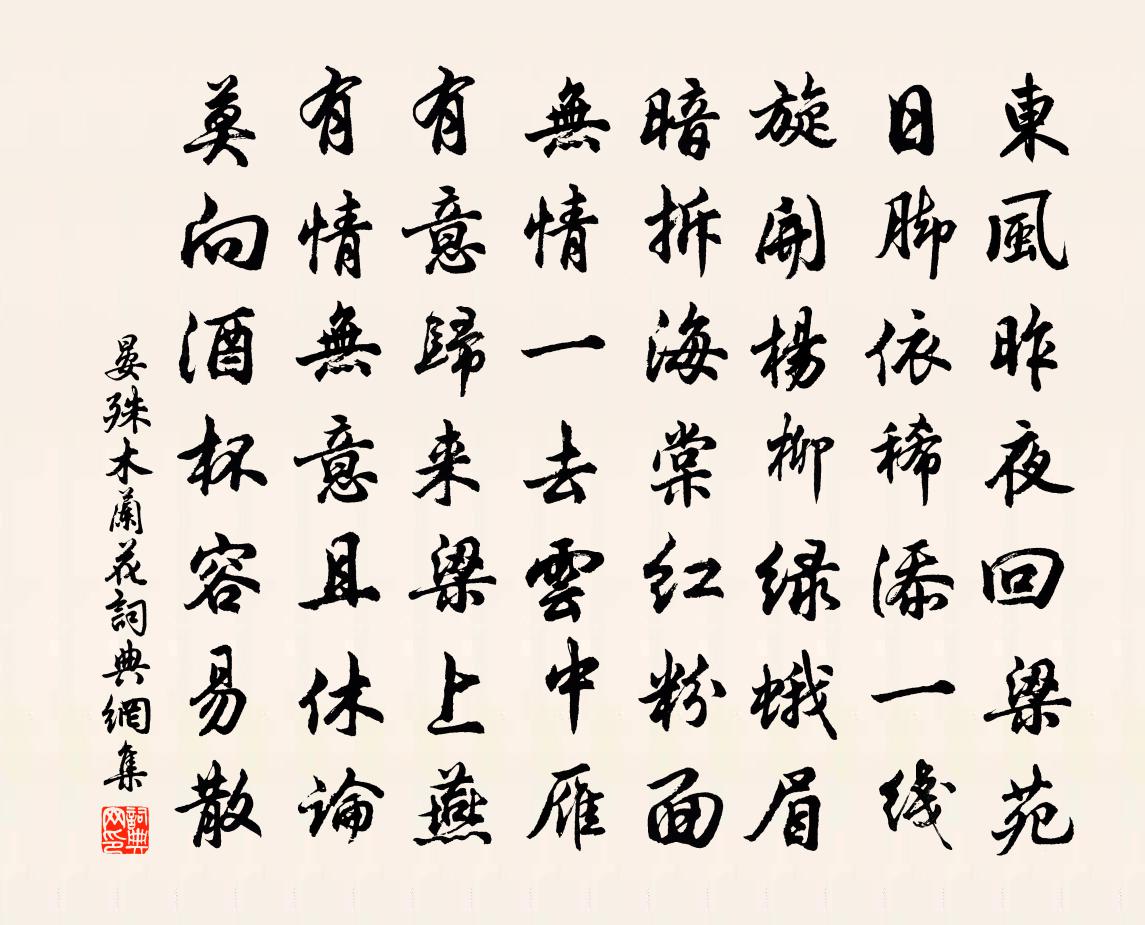 東風昨夜回梁苑
日脚依稀添一綫
旋開楊柳绿蛾眉
暗拆海棠红粉面
無情一去雲中雁
有意歸来梁上燕
有情無意且休論
莫向酒杯容易散
晏殊木蘭花詞典網集
詞典網印